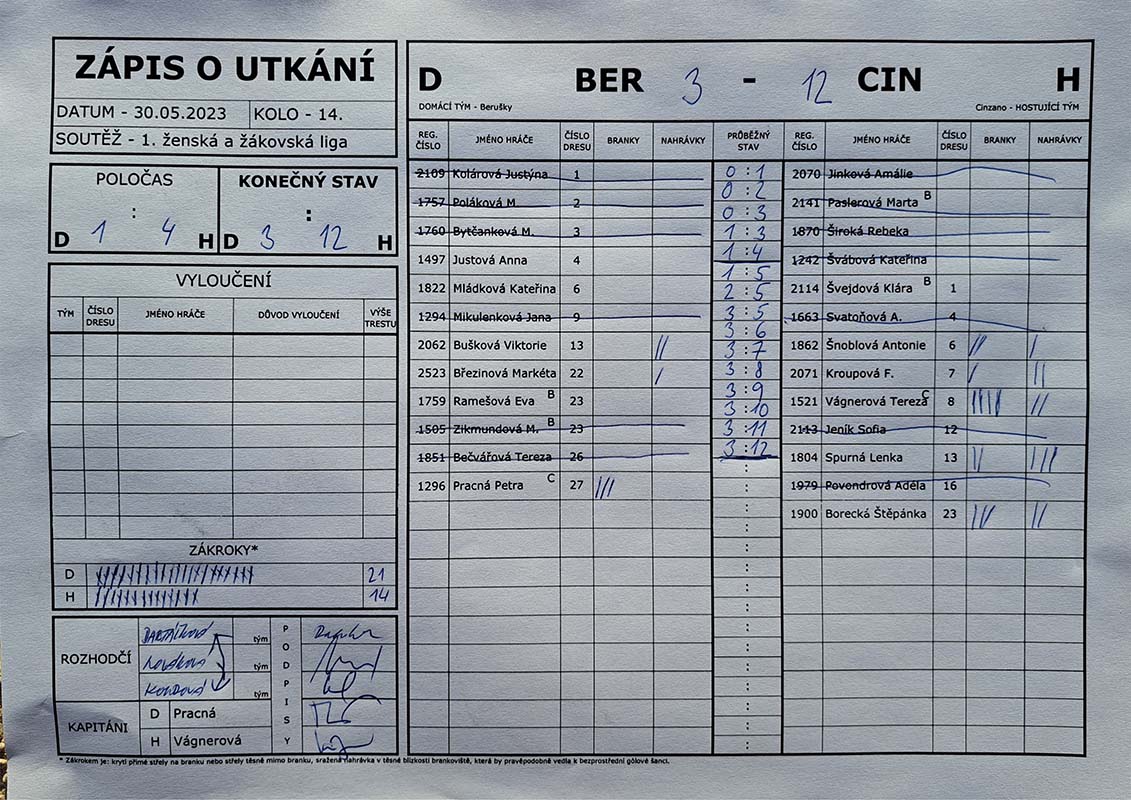 ZÁPIS O UTKÁNÍ
DATUM - 30.05.2023 KOLO - 14.
SOUTĚŽ - 1. ženská a žákovská liga
POLOČAS KONEČNÝ STAV
: :
D 1 4 H D 3 12 H
VYLOUČENÍ
TÝM ČÍSLO DRESU JMÉNO HRÁČE DŮVOD VYLOUČENÍ VÝŠE TRESTU
ZÁKROKY*
D 21
H 14
ROZHODČÍ
tým
tým
tým
PODPISY
KAPITÁNI
D Pracná
H Vágnerová
D BER 3 - 12 CIN H
DOMÁCÍ TÝM - Berušky Cinzano - HOSTUJÍCÍ TÝM
REG. ČÍSLO JMÉNO HRÁČE ČÍSLO DRESU BRANKY NAHRÁVKY PRŮBĚŽNÝ STAV REG. ČÍSLO JMÉNO HRÁČE ČÍSLO DRESU BRANKY NAHRÁVKY
2109 Kolárová Justýna 1
1757 Poláková M. 2
1760 Bytčanková M. 3
1497 Justová Anna 4
1822 Mládková Kateřina 6
1294 Mikulenková Jana 9
2062 Bušková Viktorie 13 ||
2523 Březinová Markéta 22 |
1759 Ramešová Eva B 23
1505 Zikmundová M. B 23
1851 Bečvářová Tereza 26
1296 Pracná Petra C 27 |||
0 : 1
0 : 2
0 : 3
1 : 3
1 : 4
1 : 5
2 : 5
3 : 5
3 : 6
3 : 7
3 : 8
3 : 9
3 : 10
3 : 11
3 : 12
2070 Jinková Amálie
2141 Paslerová Marta B
1870 Široká Rebeka
1242 Švábová Kateřina
2114 Švejdová Klára B 1
1663 Svatoňová A. 4
1862 Šnoblová Antonie 6 || |
2071 Kroupová F. 7 | ||
1521 Vágnerová Tereza C 8 ||||
2113 Jeník Sofia 12
1804 Spurná Lenka 13 || |||
1979 Povondrová Adéla 16
1900 Borecká Štěpánka 23 ||| ||
* Zákrokem je: krytí přímé střely na branku nebo střely těsně mimo branku, sražená nahrávka v těsné blízkosti brankoviště, která by pravěpodobně vedla k bezprostřední gólové šanci.